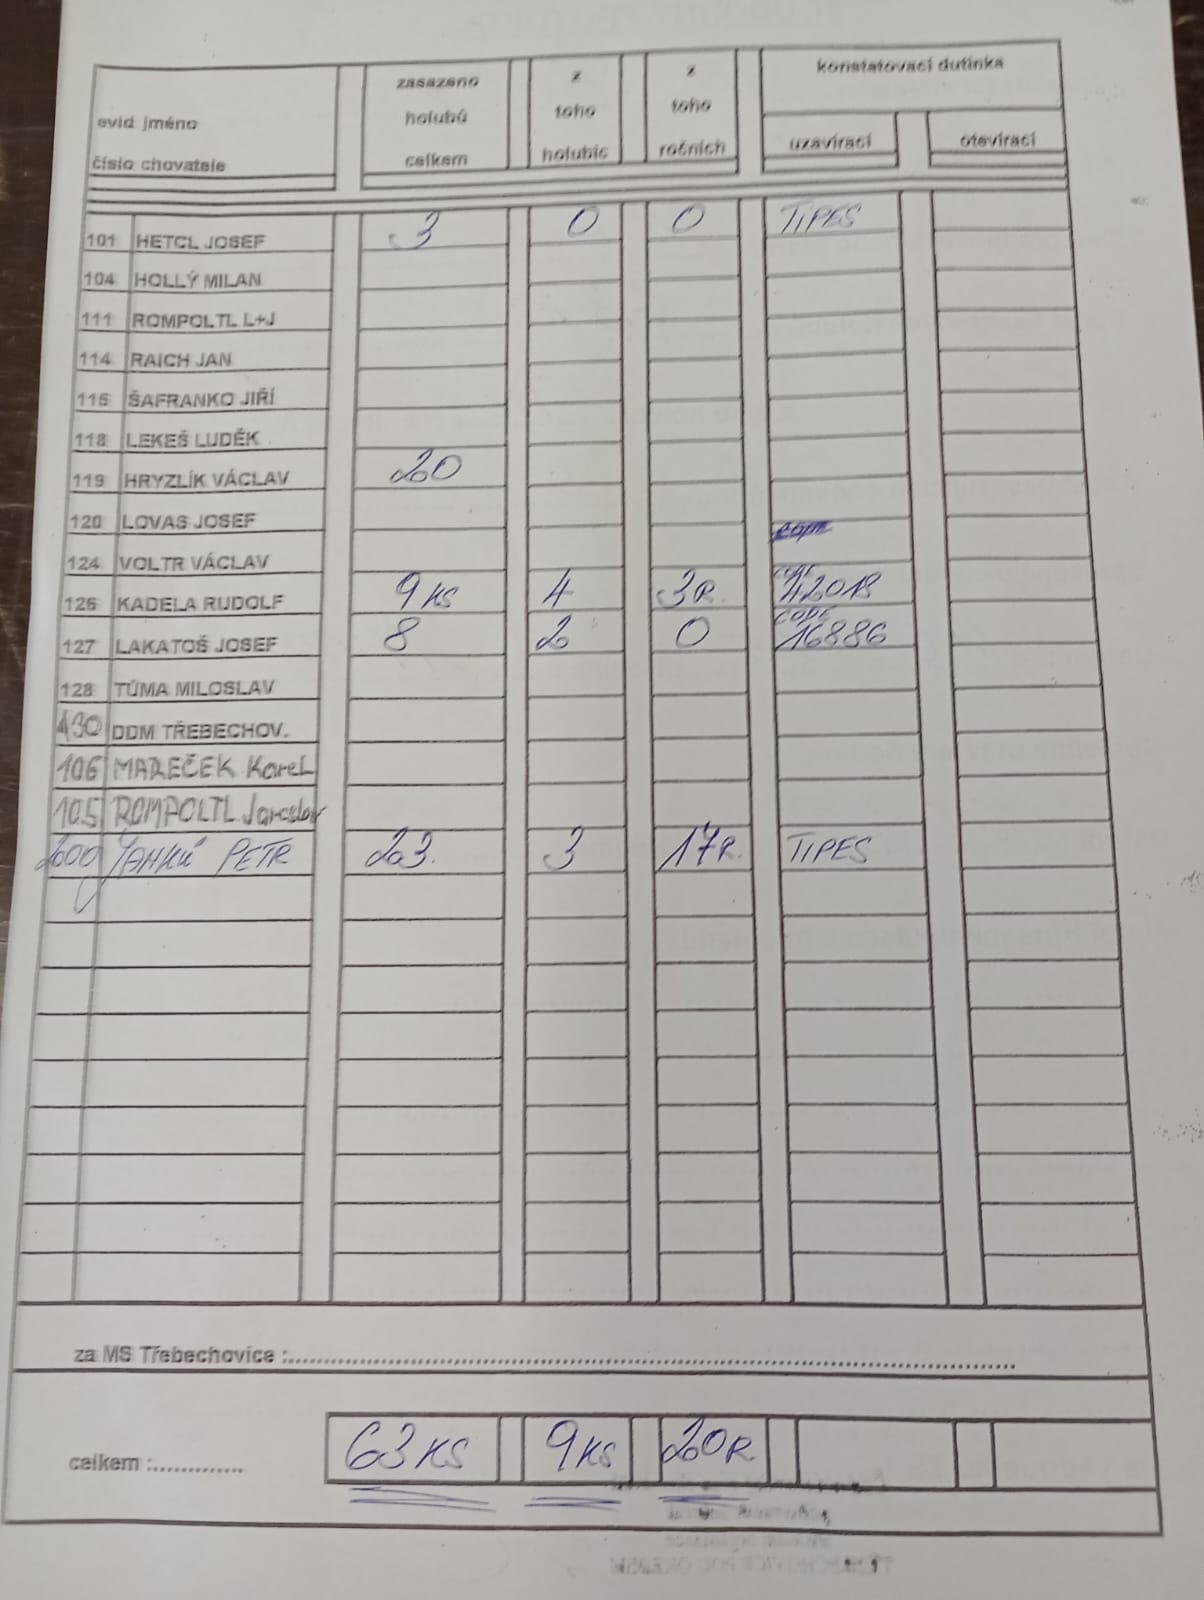 evid. jméno
číslo chovatele
zasazeno
holubů
celkem
z
toho
holubic
z
toho
ročních
konstatovací dutinka
uzavírací
otevírací
101 HETCL JOSEF 3 0 0 TIPES
104 HOLLÝ MILAN
111 ROMPOLTL L+J
114 RAICH JAN
115 ŠAFRANKO JIŘÍ
118 LEKEŠ LUDĚK
119 HRYZLÍK VÁCLAV 20
120 LOVAS JOSEF
124 VOLTR VÁCLAV
126 KADELA RUDOLF 9 KS 4 3 R. CODE 42018
127 LAKATOŠ JOSEF 8 2 0 CODE 16886
128 TŮMA MILOSLAV
130 DDM TŘEBECHOV.
106 MAREČEK Karel
105 ROMPOLTL Jaroslav
2009 JANKŮ PETR 23. 3 17 R. TIPES
za MS Třebechovice :
celkem : 63 KS 9 KS 20 R.